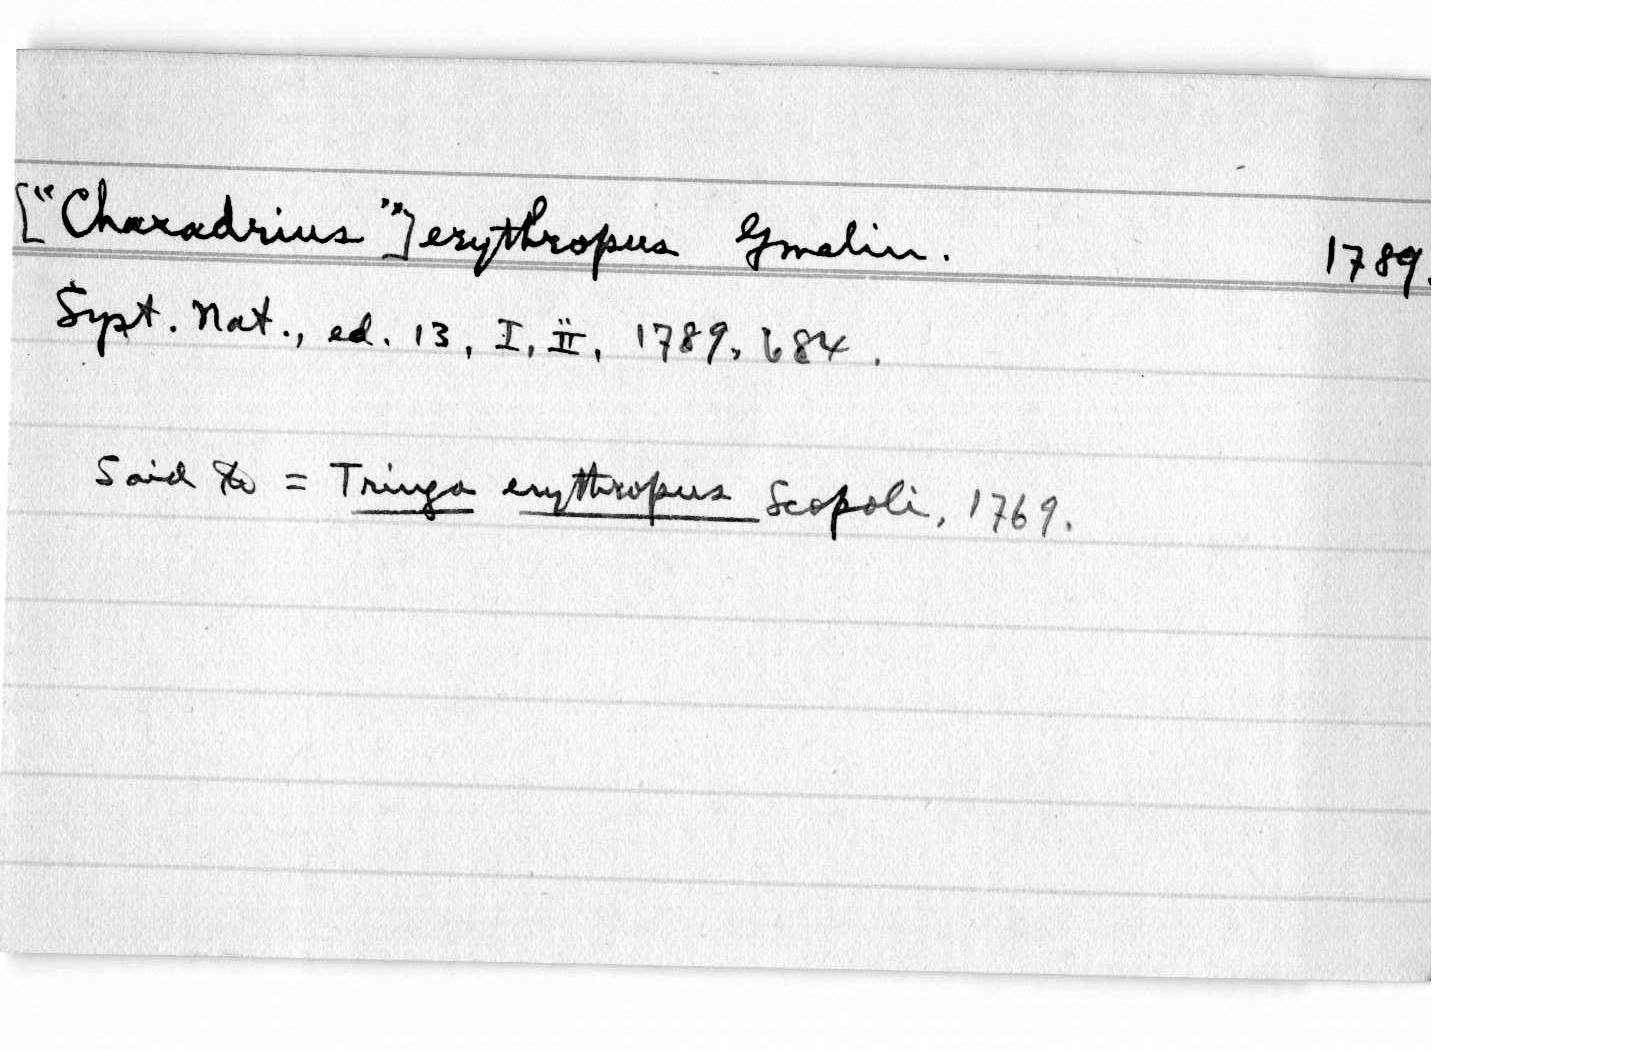 ["Charadrius"] erythropus Gmelin. 1789.
Syst. Nat., ed. 13, I, ii, 1789, 684.
Said to = Tringa erythropus Scopoli, 1769.